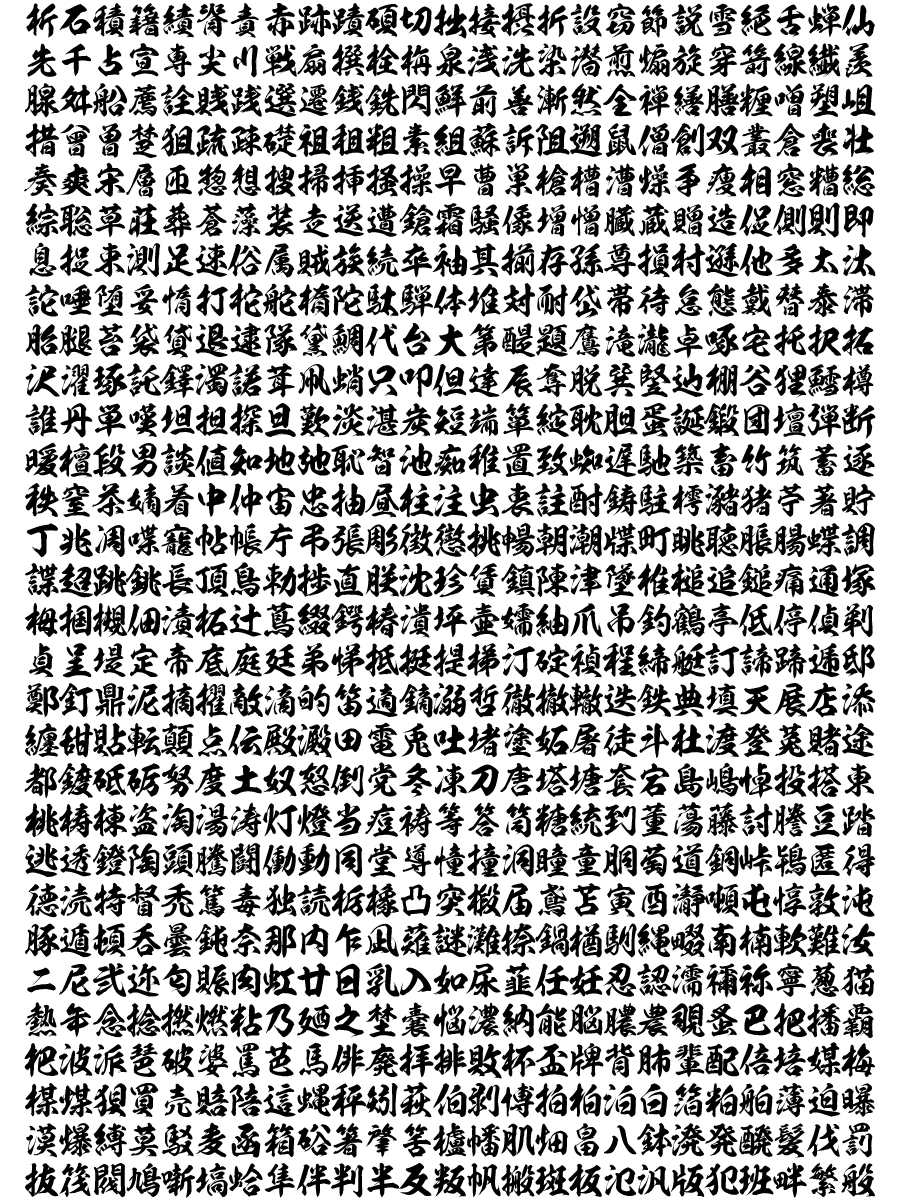 析石積籍績脊責赤跡蹟碩切拙接摂折設窃節説雪絶舌蝉仙
先千占宣専尖川戦扇撰栓栴泉浅洗染潜煎煽旋穿箭線繊羨
腺舛船薦詮賎践選遷銭銑閃鮮前善漸然全禅繕膳糎噌塑岨
措曾曽楚狙疏疎礎祖租粗素組蘇訴阻遡鼠僧創双叢倉喪壮
奏爽宋層匝惣想捜掃挿掻操早曹巣槍槽漕燥争痩相窓糟総
綜聡草荘葬蒼藻装走送遭鎗霜騒像増憎臓蔵贈造促側則即
息捉束測足速俗属賊族続卒袖其揃存孫尊損村遜他多太汰
詑唾堕妥惰打柁舵楕陀駄騨体堆対耐岱帯待怠態戴替泰滞
胎腿苔袋貸退逮隊黛鯛代台大第醍題鷹滝瀧卓啄宅托択拓
沢濯琢託鐸濁諾茸凧蛸只叩但達辰奪脱巽竪辿棚谷狸鱈樽
誰丹単嘆坦担探旦歎淡湛炭短端箪綻耽胆蛋誕鍛団壇弾断
暖檀段男談値知地弛恥智池痴稚置致蜘遅馳築畜竹筑蓄逐
秩窒茶嫡着中仲宙忠抽昼柱注虫衷註酎鋳駐樗瀦猪苧著貯
丁兆凋喋寵帖帳庁弔張彫徴懲挑暢朝潮牒町眺聴脹腸蝶調
諜超跳銚長頂鳥勅捗直朕沈珍賃鎮陳津墜椎槌追鎚痛通塚
栂掴槻佃漬柘辻蔦綴鍔椿潰坪壷嬬紬爪吊釣鶴亭低停偵剃
貞呈堤定帝底庭廷弟悌抵挺提梯汀碇禎程締艇訂諦蹄逓邸
鄭釘鼎泥摘擢敵滴的笛適鏑溺哲徹撤轍迭鉄典填天展店添
纏甜貼転顛点伝殿澱田電兎吐堵塗妬屠徒斗杜渡登菟賭途
都鍍砥砺努度土奴怒倒党冬凍刀唐塔塘套宕島嶋悼投搭東
桃梼棟盗淘湯涛灯燈当痘祷等答筒糖統到董蕩藤討謄豆踏
逃透鐙陶頭騰闘働動同堂導憧撞洞瞳童胴萄道銅峠鴇匿得
徳涜特督禿篤毒独読栃橡凸突椴届鳶苫寅酉瀞噸屯惇敦沌
豚遁頓呑曇鈍奈那内乍凪薙謎灘捺鍋楢馴縄畷南楠軟難汝
二尼弐迩匂賑肉虹廿日乳入如尿韮任妊忍認濡禰祢寧葱猫
熱年念捻撚燃粘乃廼之埜嚢悩濃納能脳膿農覗蚤巴把播覇
杷波派琶破婆罵芭馬俳廃拝排敗杯盃牌背肺輩配倍培媒梅
楳煤狽買売賠陪這蝿秤矧萩伯剥博拍柏泊白箔粕舶薄迫曝
漠爆縛莫駁麦函箱硲箸肇筈櫨幡肌畑畠八鉢溌発醗髪伐罰
抜筏閥鳩噺塙蛤隼伴判半反叛帆搬斑板氾汎版犯班畔繁般